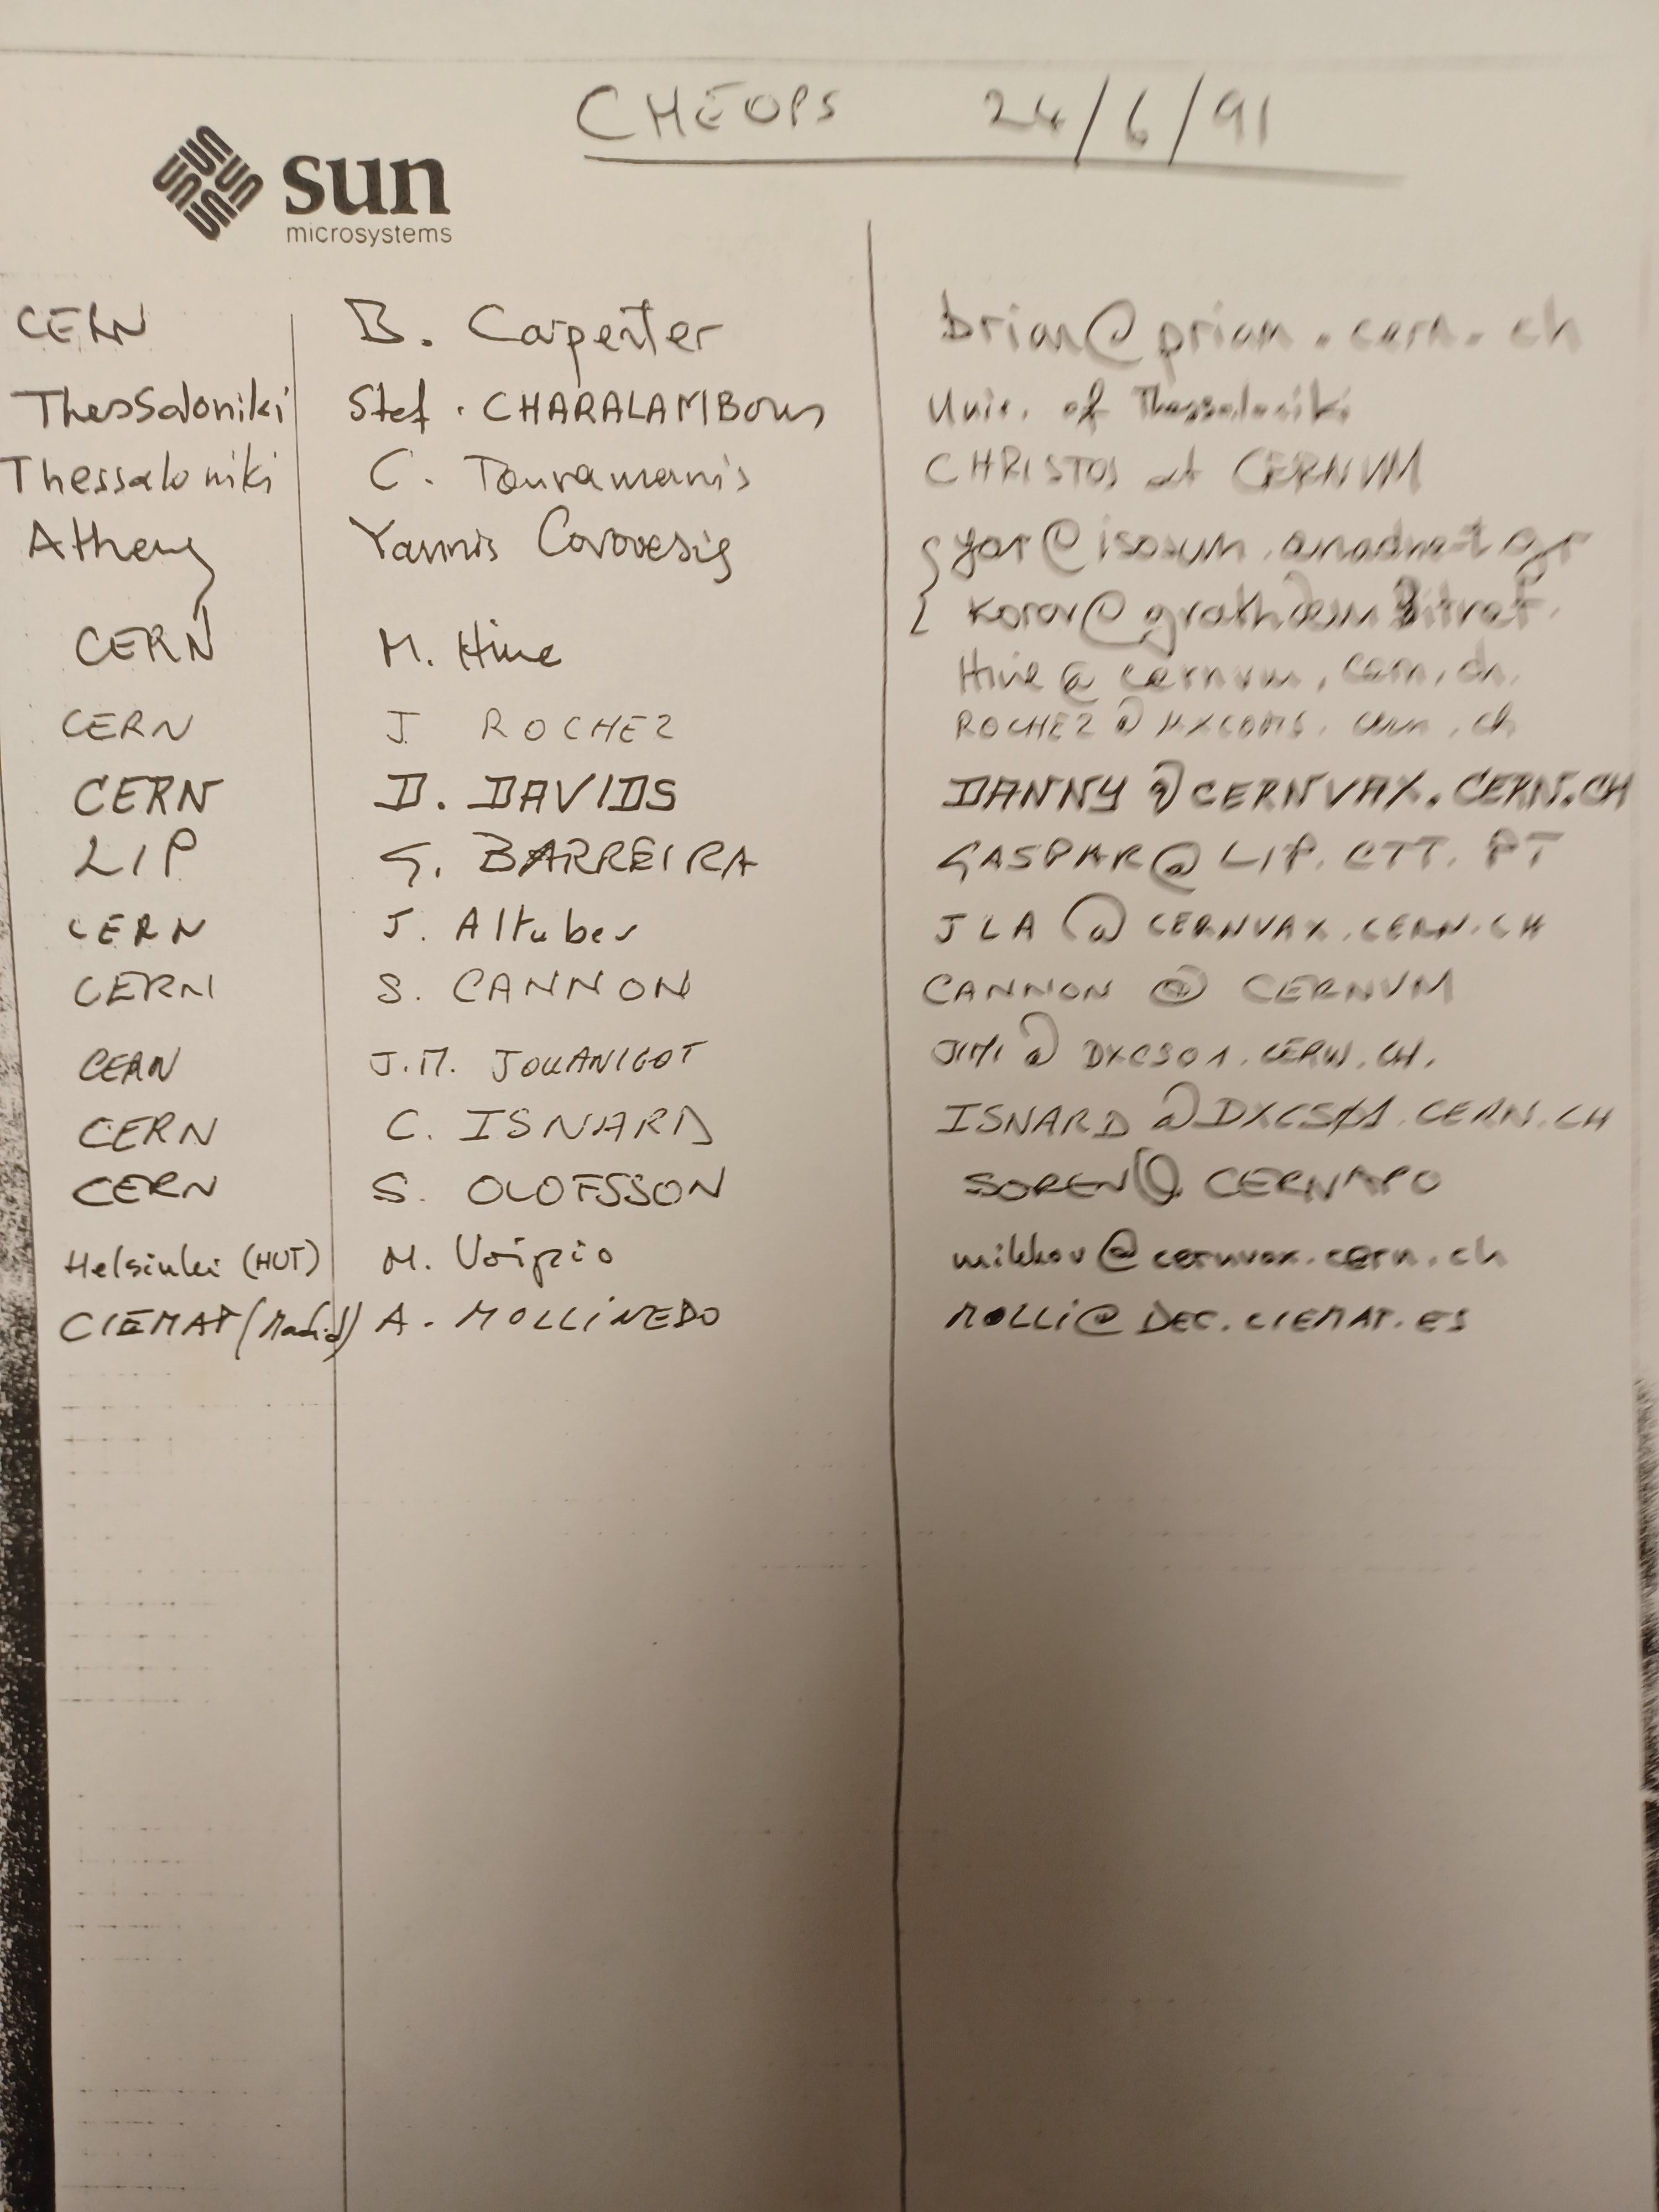 CHEOPS 24/6/91
sun
microsystems
CERN B. Carpenter brian@priam.cern.ch
Thessaloniki Stef. CHARALAMBous Univ. of Thessaloniki
Thessaloniki C. Touramanis CHRISTOS at CERNVM
Athens Yannis Corovesis yar@isosun.ariadne-t.gr
CERN M. Hine
Hine@cernvm.cern.ch.
CERN J ROCHEZ ROCHEZ@ cern.ch
CERN D. DAVIDS DANNY@CERNVAX.CERN.CH
LIP G. BARREIRA GASPAR@LIP.CTT.PT
CERN J. Altaber JLA@CERNVAX.CERN.CH
CERN S. CANNON CANNON @ CERNVM
CERN J.M. JOUANIGOT JIMI@DXCS01.CERN.CH.
CERN C. ISNARD ISNARD@DXCSØ1.CERN.CH
CERN S. OLOFSSON SOREN@CERNAPO
Helsinki (HUT) M. Voipio mikkov@cernvax.cern.ch
CIEMAT (Madrid) A. MOLLiNEDO MOLLi@DEC.CIEMAT.ES